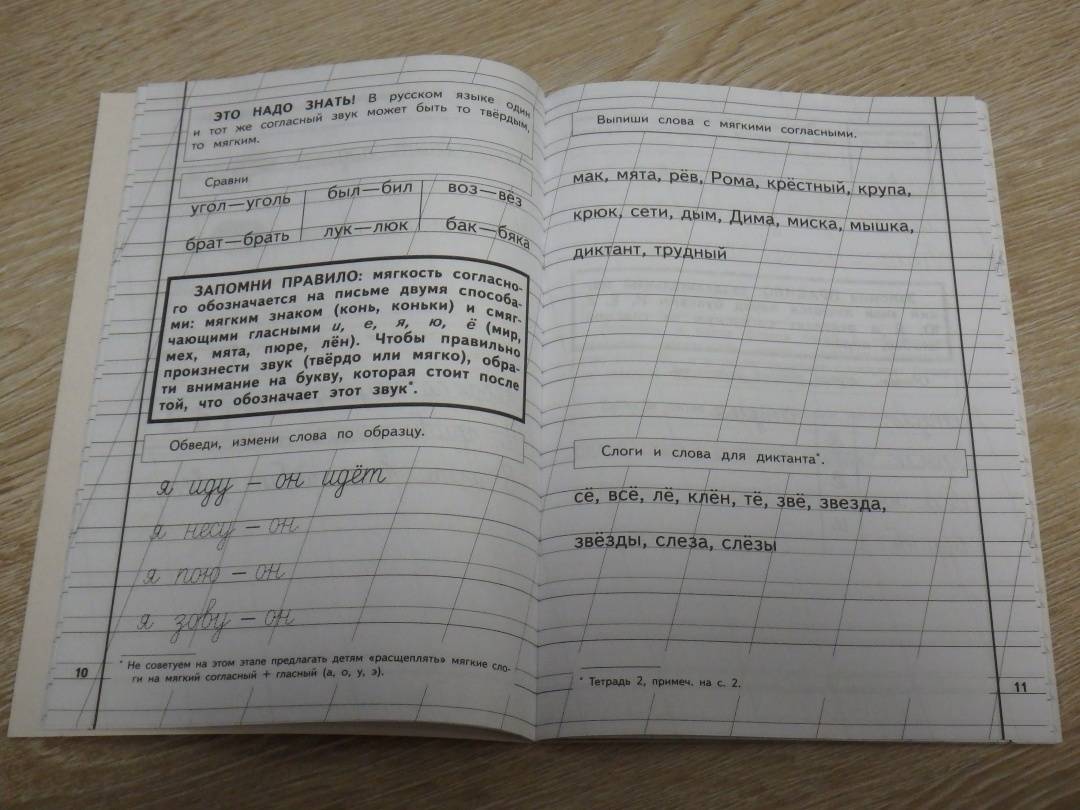 ЭТО НАДО ЗНАТЬ! В русском языке один
и тот же согласный звук может быть то твёрдым,
то мягким.
Сравни
угол—уголь был—бил воз—вёз
брат—брать лук—люк бак—бяка
ЗАПОМНИ ПРАВИЛО: мягкость согласно-
го обозначается на письме двумя способа-
ми: мягким знаком (конь, коньки) и смяг-
чающими гласными и, е, я, ю, ё (мир,
мех, мята, пюре, лён). Чтобы правильно
произнести звук (твёрдо или мягко), обра-
ти внимание на букву, которая стоит после
той, что обозначает этот звук*.
Обведи, измени слова по образцу.
я иду — он идёт
я несу — он
я пою — он
я зову — он
* Не советуем на этом этапе предлагать детям «расщеплять» мягкие сло-
ги на мягкий согласный + гласный (а, о, у, э).
10
Выпиши слова с мягкими согласными.
мак, мята, рёв, Рома, крёстный, крупа,
крюк, сети, дым, Дима, миска, мышка,
диктант, трудный
Слоги и слова для диктанта*.
сё, всё, лё, клён, тё, звё, звезда,
звёзды, слеза, слёзы
* Тетрадь 2, примеч. на с. 2.
11